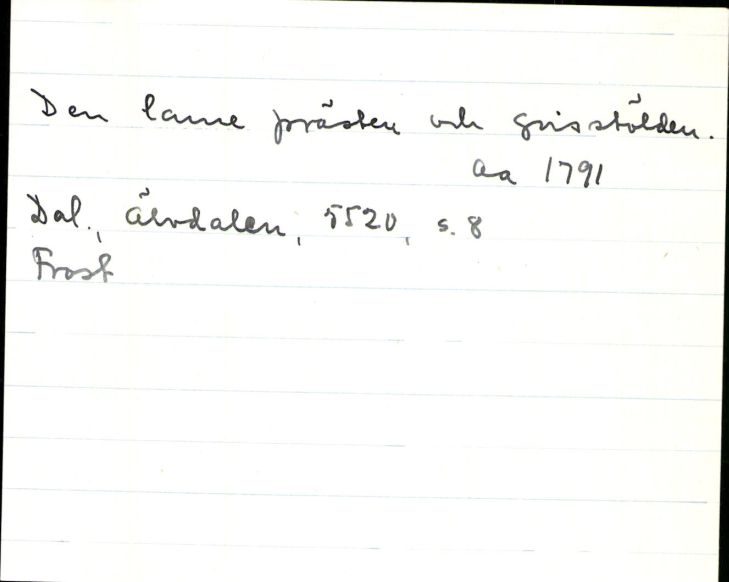 Den lame prästen och grisstölden.
Aa 1791
Dal., Älvdalen, 5520, s. 8
Frost